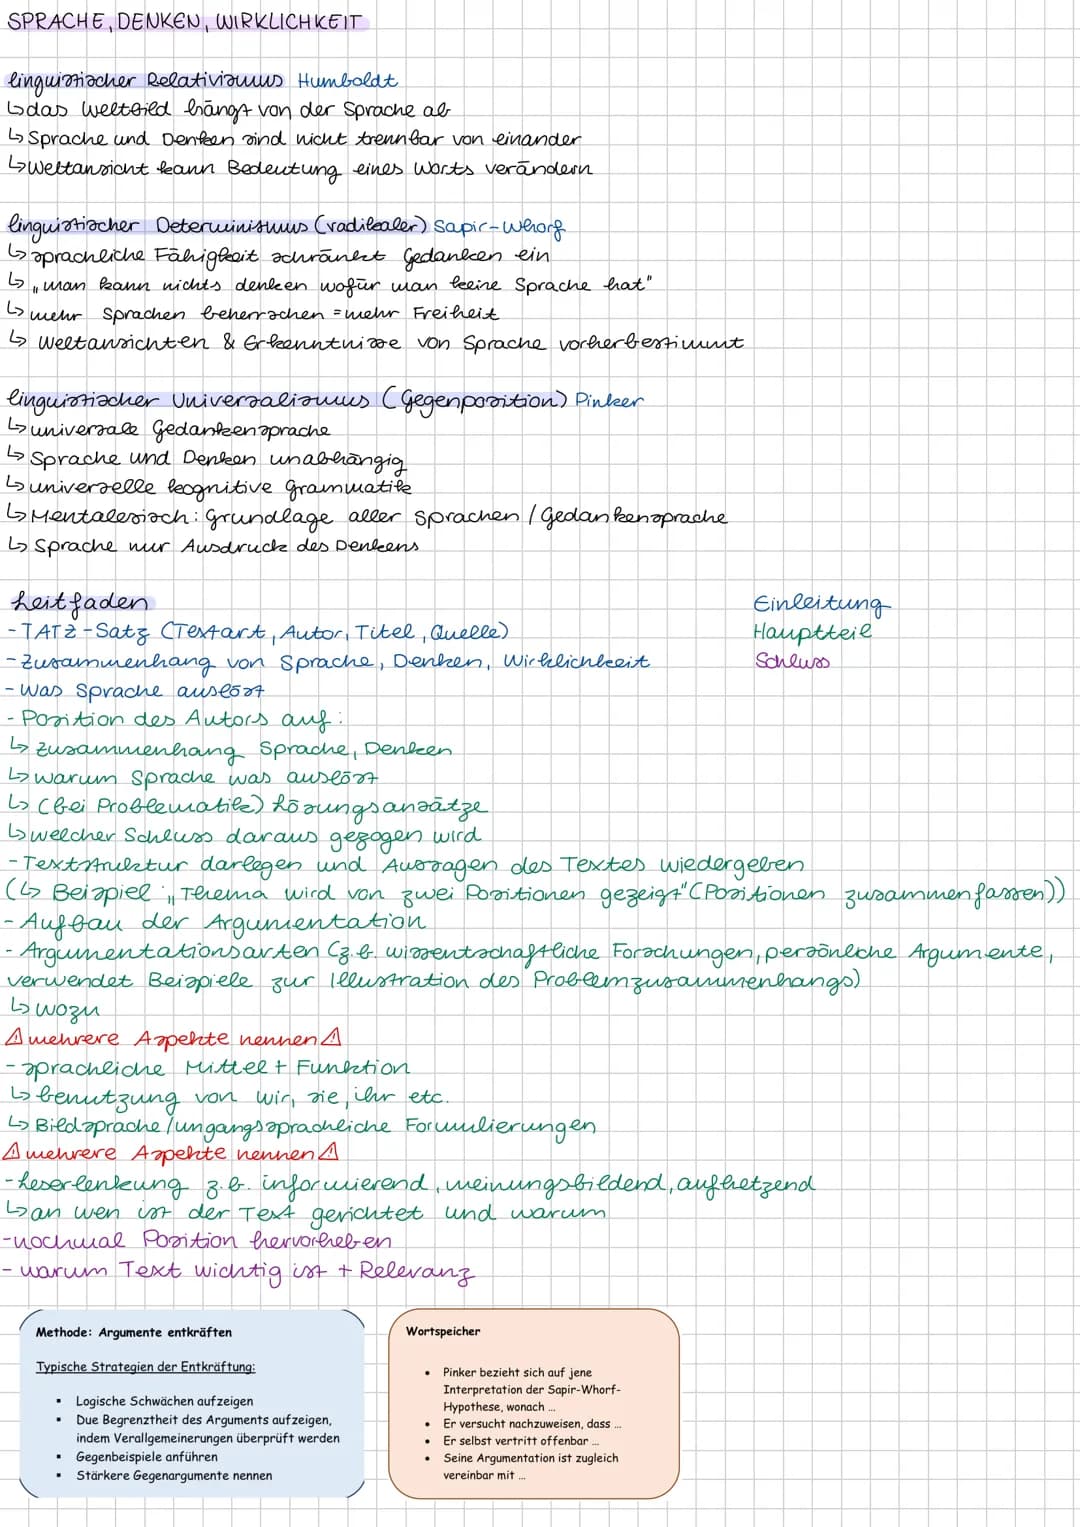 SPRACHE, DENKEN, WIRKLICHKEIT
linguistischer Relativismus Humboldt
↳das Weltbild hängt von der Sprache ab
↳Sprache und Denken sind nicht trennbar von einander
↳Weltansicht kann Bedeutung eines Worts verändern
linguistischer Determinismus (radikaler) Sapir-Whorf
↳sprachliche Fähigkeit schränkt Gedanken ein
↳„man kann nichts denken wofür man keine Sprache hat"
↳mehr Sprachen beherrschen = mehr Freiheit
↳ Weltansichten & Erkenntnisse von Sprache vorherbestimmt
linguistischer Universalismus (Gegenposition) Pinker
↳universale Gedankensprache
↳ Sprache und Denken unabhängig
↳universelle kognitive Grammatik
↳Mentalesisch: Grundlage aller Sprachen / Gedankensprache
↳ Sprache nur Ausdruck des Denkens
Leitfaden
Einleitung
-TATZ-Satz (Textart, Autor, Titel, Quelle)
Hauptteil
-Zusammenhang von Sprache, Denken, Wirklichkeit
Schluss
-Was Sprache auslöst
- Position des Autors auf:
↳ Zusammenhang Sprache, Denken
↳warum Sprache was auslöst
↳ (bei Problematik) Lösungsansätze
↳welcher Schluss daraus gezogen wird
-Textstruktur darlegen und Aussagen des Textes wiedergeben
(↳ Beispiel: „Thema wird von zwei Positionen gezeigt" (Positionen zusammenfassen))
- Aufbau der Argumentation
- Argumentationsarten (z.b. wissentschaftliche Forschungen, persönliche Argumente,
verwendet Beispiele zur Illustration des Problemzusammenhangs)
↳wozu
⚠mehrere Aspekte nennen⚠
-sprachliche Mittel + Funktion
↳benutzung von wir, sie, ihr etc.
↳Bildsprache/ungangssprachliche Formulierungen
⚠mehrere Aspekte nennen⚠
-Leserlenkung z.b. informierend, meinungsbildend, aufhetzend
↳an wen ist der Text gerichtet und warum
-nochmal Position hervorheben
- warum Text wichtig ist + Relevanz
Methode: Argumente entkräften
Typische Strategien der Entkräftung:
▪ Logische Schwächen aufzeigen
▪ Due Begrenztheit des Arguments aufzeigen,
indem Verallgemeinerungen überprüft werden
▪ Gegenbeispiele anführen
▪ Stärkere Gegenargumente nennen
Wortspeicher
• Pinker bezieht sich auf jene
Interpretation der Sapir-Whorf-
Hypothese, wonach …
• Er versucht nachzuweisen, dass …
• Er selbst vertritt offenbar …
• Seine Argumentation ist zugleich
vereinbar mit …